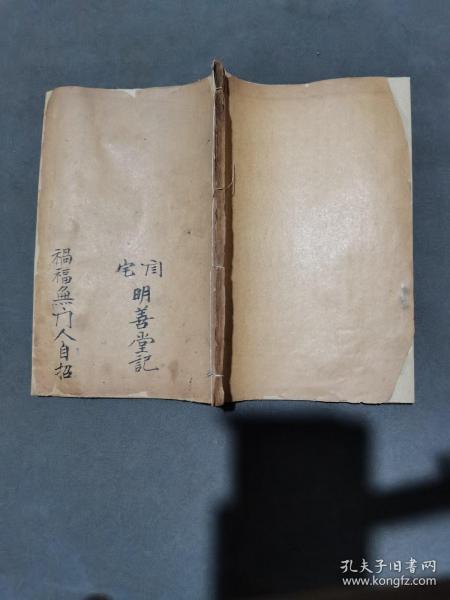 闫宅
明善堂記
禍福無门人自招
孔夫子旧书网
www.kongfz.com